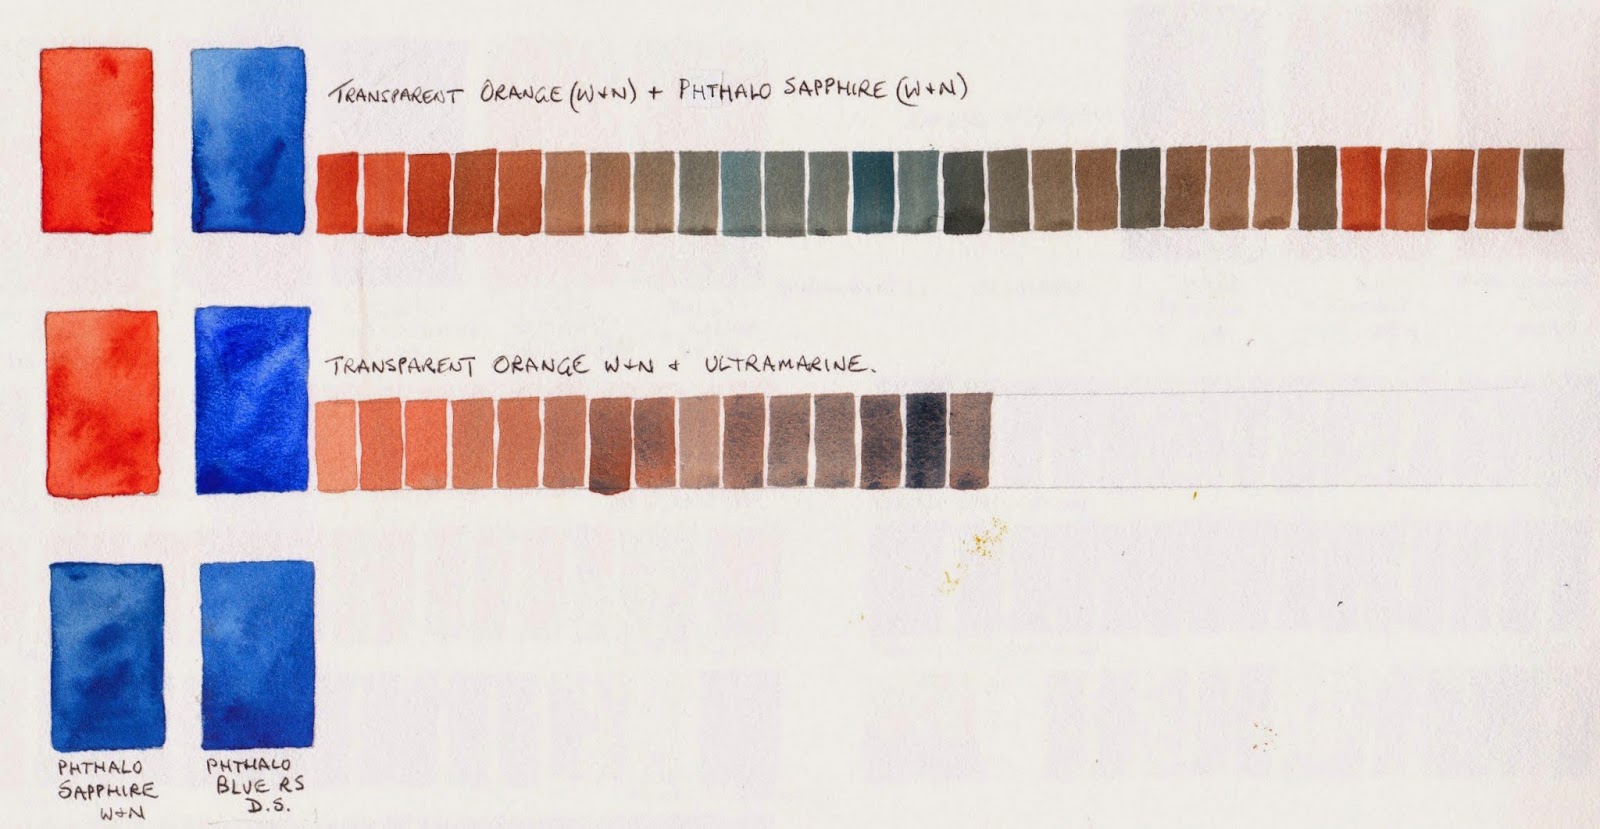 TRANSPARENT ORANGE (W+N) + PHTHALO SAPPHIRE (W+N)
TRANSPARENT ORANGE W+N + ULTRAMARINE.
PHTHALO
SAPPHIRE
W+N
PHTHALO
BLUE RS
D.S.